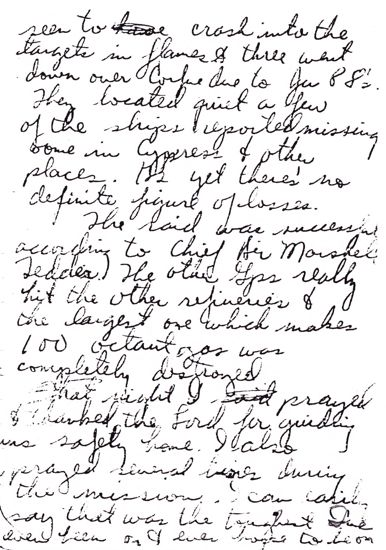 seen to have crash into the
targets in flames & three went
down over Corfue due to Ju 88's.
They located quiet a few
of the ships reported missing
some in Cypress & other
places. It's yet there's no
definite figure of losses.
The raid was successful
according to Chief Air Marshel
Tedder. The other Gps really
hit the other refineries &
the largest one which makes
100 octant gas was
completely distroyed
That night I said prayed
& thanked the Lord for guiding
us safely home. I also
prayed several times during
the mission. I can easily
say that was the toughest I've
even been on & ever hope to be on